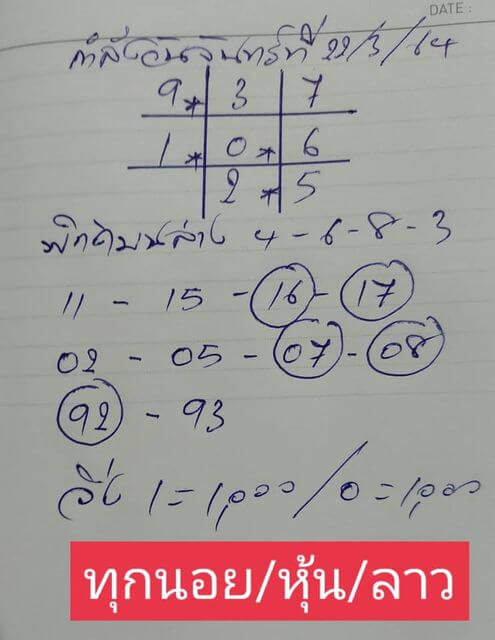 DATE :
กำลังวันจันทร์ที่ 22/3/64
9 * 3 7
1 * 0 * 6
2 * 5
บนล่าง 4 - 6 - 8 - 3
11 - 15 - 16 - 17
02 - 05 - 07 - 08
92 - 93
วิ่ง 1 = 1,000 / 0 = 1,000
ทุกนอย/หุ้น/ลาว